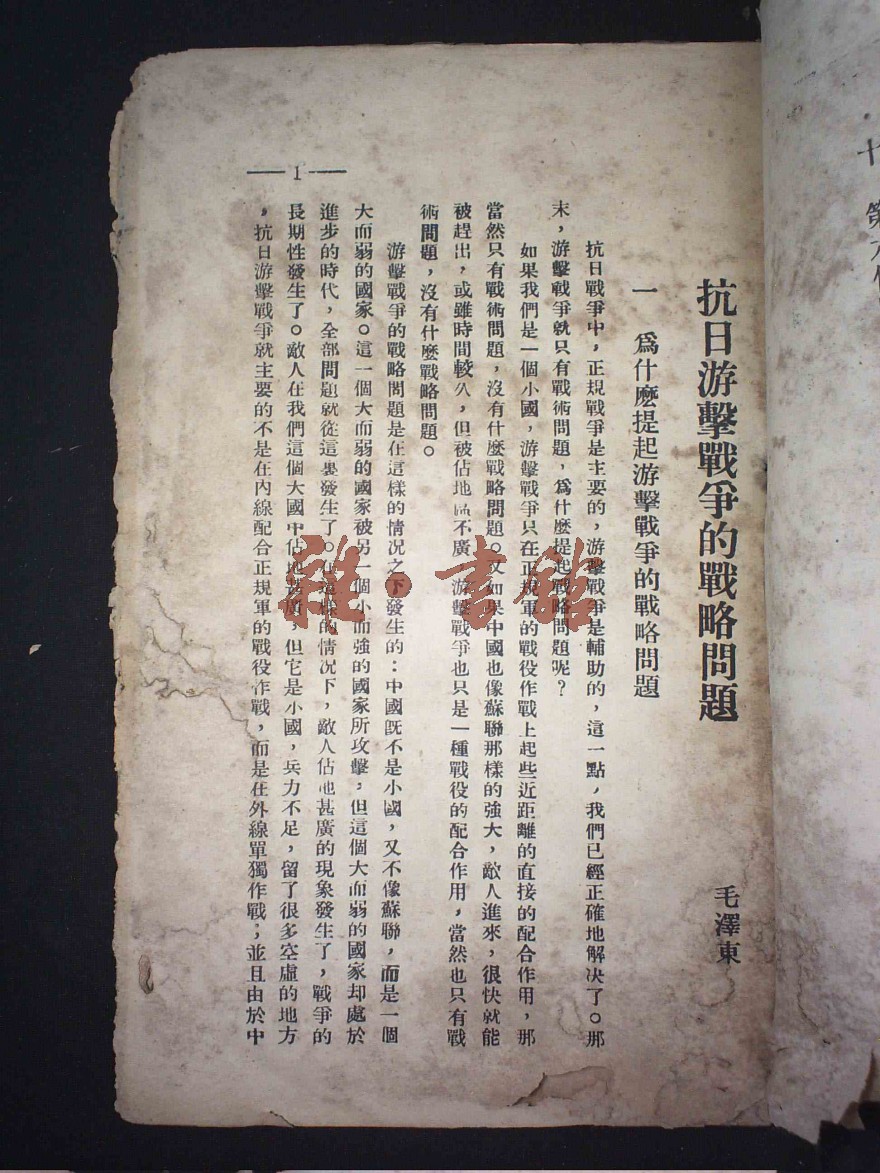 抗日游擊戰爭的戰略問題
毛澤東
一　爲什麽提起游擊戰爭的戰略問題
抗日戰爭中，正規戰爭是主要的，游擊戰爭是輔助的，這一點，我們已經正確地解决了。那
末，游擊戰爭就只有戰術問題，爲什麽提起戰略問題呢？
如果我們是一個小國，游擊戰爭只在正規軍的戰役作戰上起些近距離的直接的配合作用，那
當然只有戰術問題，沒有什麽戰略問題。又如果中國也像蘇聯那樣的強大，敵人進來，很快就能
被趕出，或雖時間較久，但被佔地區不廣，游擊戰爭也只是一種戰役的配合作用，當然也只有戰
術問題，沒有什麽戰略問題。
游擊戰爭的戰略問題是在這樣的情况之下發生的：中國旣不是小國，又不像蘇聯，而是一個
大而弱的國家。這一個大而弱的國家被另一個小而強的國家所攻擊，但這個大而弱的國家却處於
進步的時代，全部問題就從這裏發生了。在這樣的情况下，敵人佔地甚廣的現象發生了，戰爭的
長期性發生了。敵人在我們這個大國中佔地甚廣，但它是小國，兵力不足，留了很多空虛的地方
，抗日游擊戰爭就主要的不是在內線配合正規軍的戰役作戰，而是在外線單獨作戰；並且由於中
1
雜·書館
十　第六